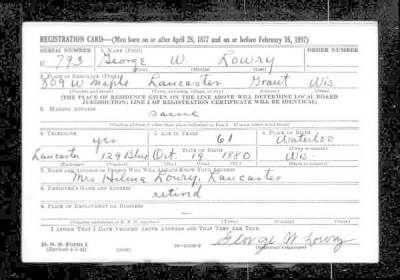 REGISTRATION CARD—(Men born on or after April 28, 1877 and on or before February 16, 1897)
SERIAL NUMBER 1. NAME (Print) ORDER NUMBER
U 793 George W. Lowry
2. PLACE OF RESIDENCE (Print)
309 W Maple Lancaster Grant Wis.
(Number and street) (Town, township, village, or city) (County) (State)
[THE PLACE OF RESIDENCE GIVEN ON THE LINE ABOVE WILL DETERMINE LOCAL BOARD
JURISDICTION; LINE 2 OF REGISTRATION CERTIFICATE WILL BE IDENTICAL]
3. MAILING ADDRESS
same
[Mailing address if other than place indicated on line 2. If same insert word same]
4. TELEPHONE 5. AGE IN YEARS 6. PLACE OF BIRTH
yes 61 Waterloo
DATE OF BIRTH (Town or county)
Lancaster 129 Blue Oct. 19 1880 Wis.
(Exchange) (Number) (Mo.) (Day) (Yr.) (State or country)
7. NAME AND ADDRESS OF PERSON WHO WILL ALWAYS KNOW YOUR ADDRESS
Mrs Helena Lowry, Lancaster
8. EMPLOYER'S NAME AND ADDRESS
retired
9. PLACE OF EMPLOYMENT OR BUSINESS
(Number and street or R. F. D. number) (Town) (County) (State)
I AFFIRM THAT I HAVE VERIFIED ABOVE ANSWERS AND THAT THEY ARE TRUE.
George W Lowry
D. S. S. Form 1
(Revised 4-1-42) (over) (Registrant's signature)